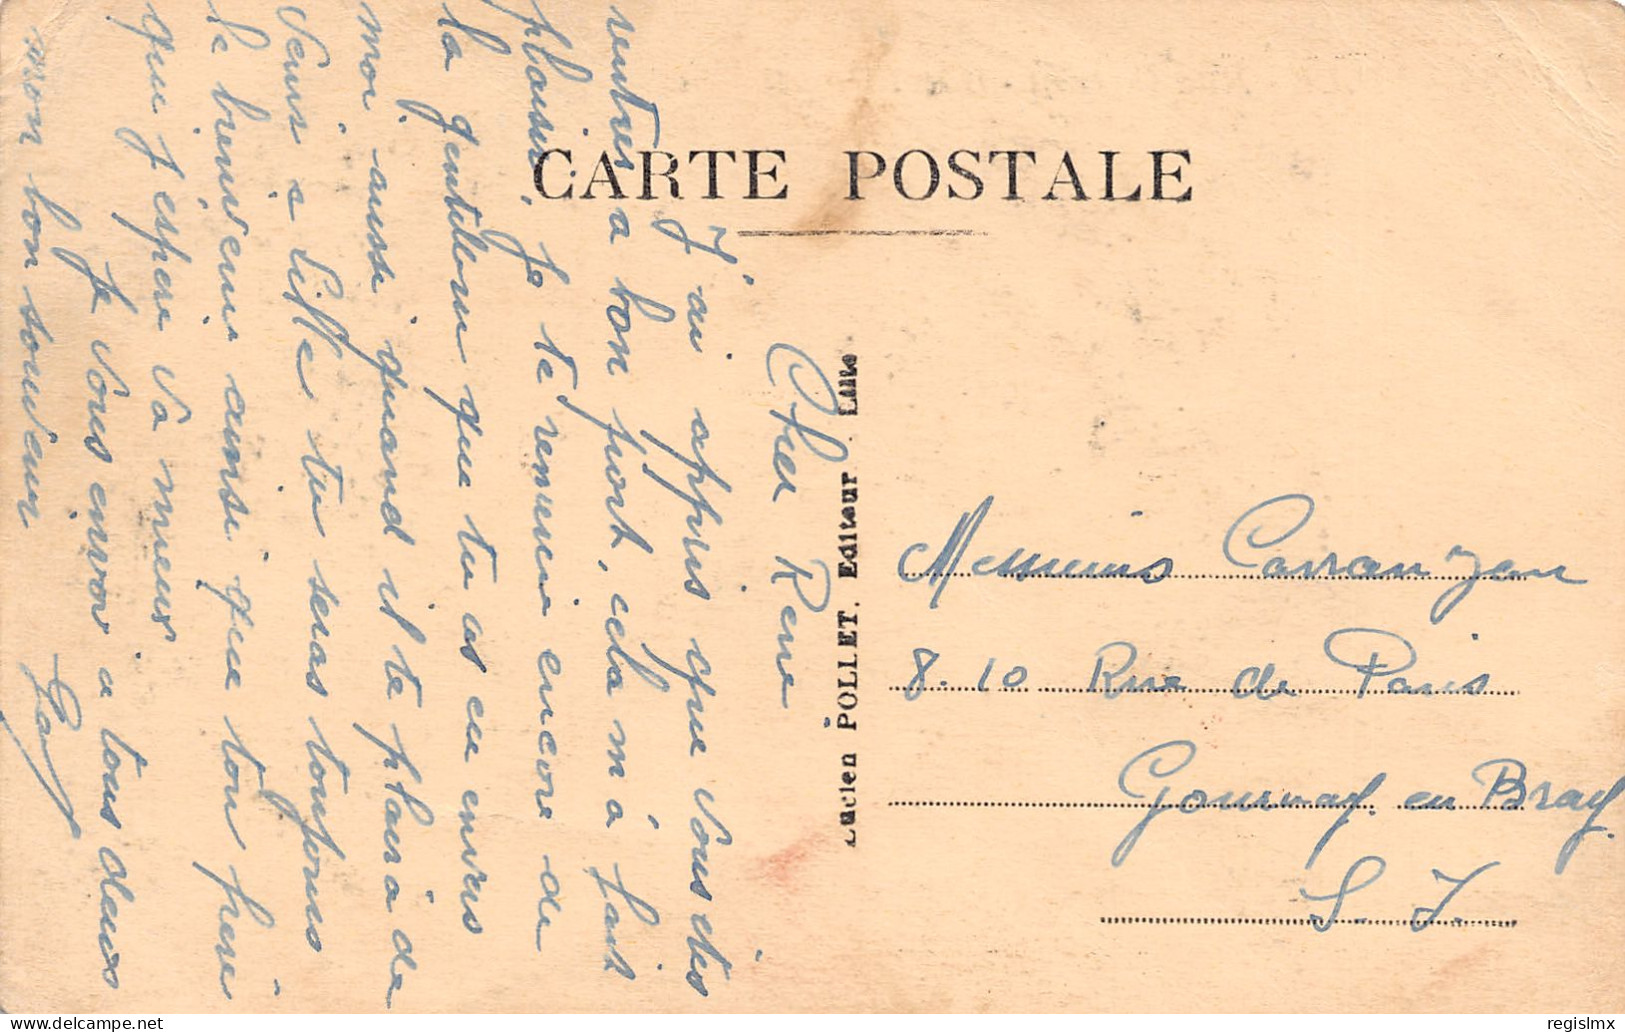 CARTE POSTALE
Cher René
J'ai appris que vous étés
rentres a bon port, cela m'a fait
plaisir, je te remercie encore de
la gentilesse que tu as eu envers
moi aussi quand il te plaira de
venir a Lille tu seras toujours
le bienvenu ainsi que ton frère
que j'espere va mieux
Je vous envoi a tous deux
mon bon souvenir
Lucien POLLET. Editeur - Lille
Messieurs
8-10 Rue de Paris
Gournay en Bray
S. I.
regislmx